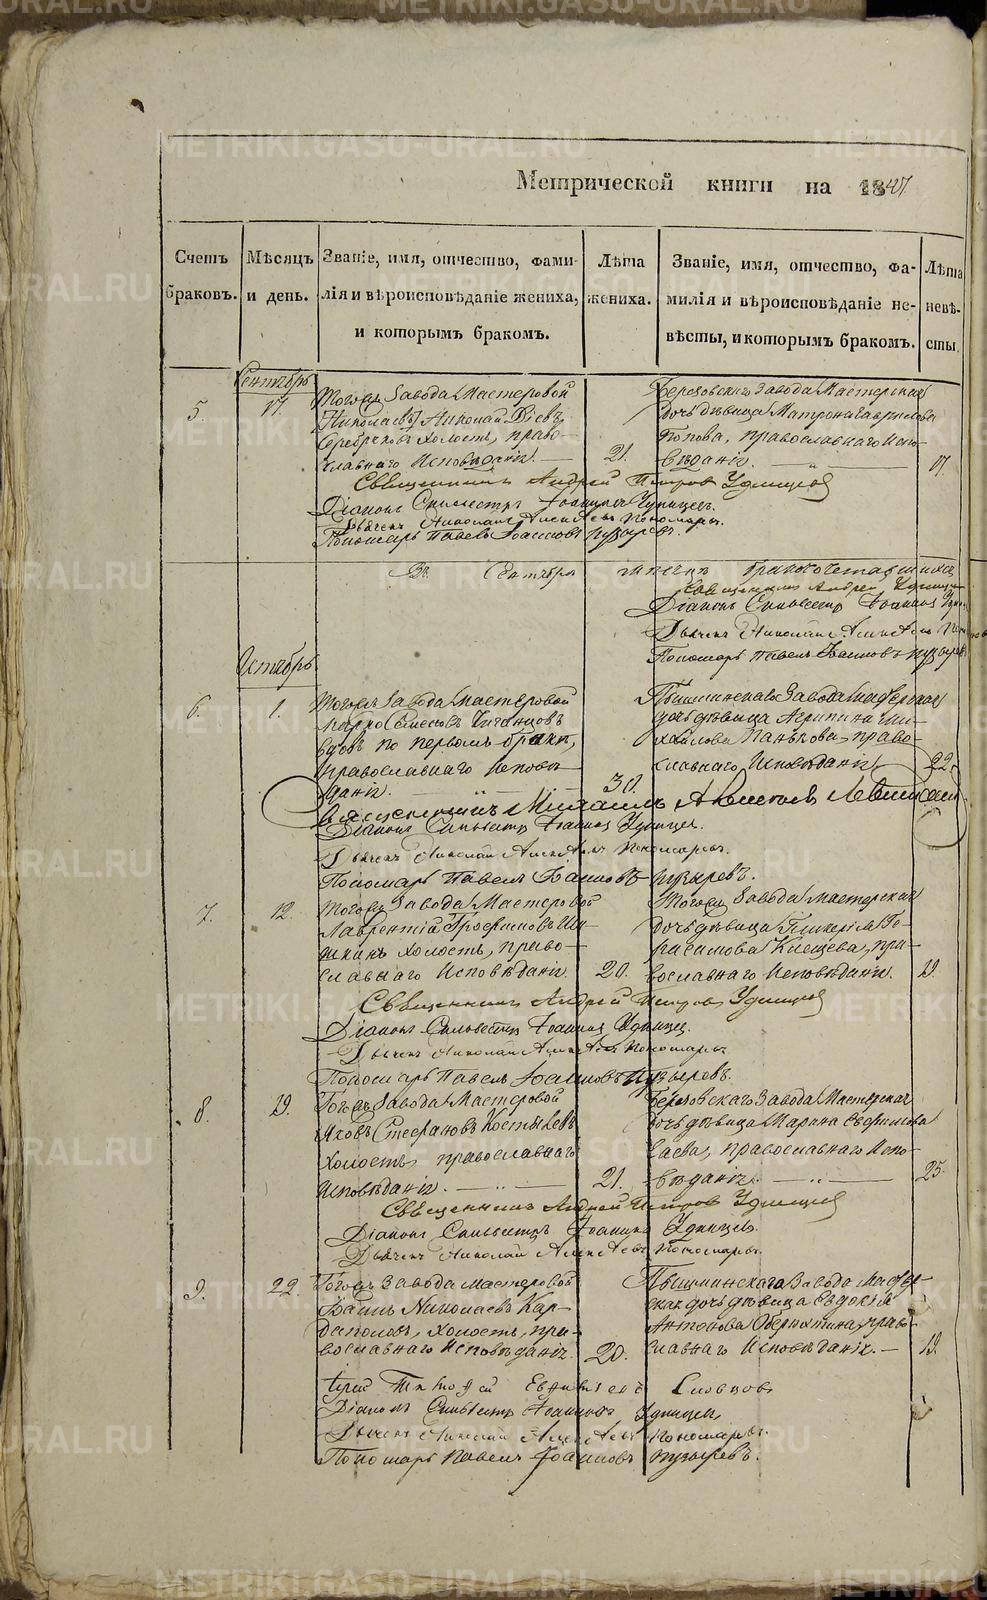 METRIKI.GASO-URAL.RU
Метрической книги на 1847
Счетъ браковъ.
Мѣсяцъ и день.
Званіе, имя, отчество, фами-
лія и вѣроисповѣданіе жениха,
и которымъ бракомъ.
Лѣта жениха.
Званіе, имя, отчество, фа-
милія и вѣроисповѣданіе не-
вѣсты, и которымъ бракомъ.
Лѣта невѣ-
сты.
Сентябрь
5. 17.
Тогожъ Завода Мастеровой
Николай
Серебряковъ холостъ, право-
славнаго Исповѣданія.
21.
Березовскаго Завода Мастерская
дочь дѣвица Матрона Гаврилова
Попова, православнаго Испо-
вѣданія.
17.
Священникъ Андрей Петровъ Удинцевъ
Діаконъ Сильвестръ Іоанновъ Удинцевъ.
Дьячекъ Николай Алексѣевъ Пономаревъ.
Пономарь Павелъ Іоанновъ Пузыревъ.
Въ Сентябрѣ бракосочетавшихся
Священникъ Андрей Удинцевъ
Діаконъ Сильвестръ Іоанновъ
Дьячекъ Николай Алексѣевъ
Пономарь Павелъ Іоанновъ Пузыревъ
Октябрь
6. 1.
Тогожъ Завода Мастеровой
вдовъ по первомъ бракѣ,
православнаго Исповѣ-
данія.
30.
Пышминскаго Завода Мастерская
дочь дѣвица Агрипина Ми-
хайлова Панькова, право-
славнаго Исповѣданія
22.
Священникъ Михаилъ
Діаконъ Сильвестръ Іоанновъ Удинцевъ.
Дьячекъ Николай Алексѣевъ Пономаревъ.
Пономарь Павелъ Іоанновъ Пузыревъ.
7. 12.
Тогожъ Завода Мастеровой
Лаврентій Трофимовъ Ши-
шкинъ холостъ, право-
славнаго Исповѣданія
20.
Тогожъ Завода Мастерская
дочь дѣвица Гликерія Ге-
расимова Клещева, пра-
вославнаго Исповѣданія.
19.
Священникъ Андрей Петровъ Удинцевъ
Діаконъ Сильвестръ Іоанновъ Удинцевъ.
Дьячекъ Николай Алексѣевъ Пономаревъ
Пономарь Павелъ Іоанновъ Пузыревъ.
8. 19.
Тогожъ Завода Мастеровой
Яковъ Стефановъ Костылевъ
холостъ, православнаго
Исповѣданія.
21.
Березовскаго Завода Мастерская
дочь дѣвица Марина Евфимова
православнаго Испо-
вѣданія.
25.
Священникъ Андрей Петровъ Удинцевъ
Діаконъ Сильвестръ Іоанновъ Удинцевъ.
Дьячекъ Николай Алексѣевъ Пономаревъ.
9. 22.
Тогожъ Завода Мастеровой
Николаевъ Кар-
дополовъ, холостъ, пра-
вославнаго Исповѣданія.
20.
Пышминскаго Завода Мастер-
ская дочь дѣвица Евдокія
Антонова право-
славнаго Исповѣданія.
19.
Іерей Тимоѳей Словцовъ
Діаконъ Сильвестръ Іоанновъ Удинцевъ
Дьячекъ Николай Алексѣевъ Пономаревъ.
Пономарь Павелъ Іоанновъ Пузыревъ.